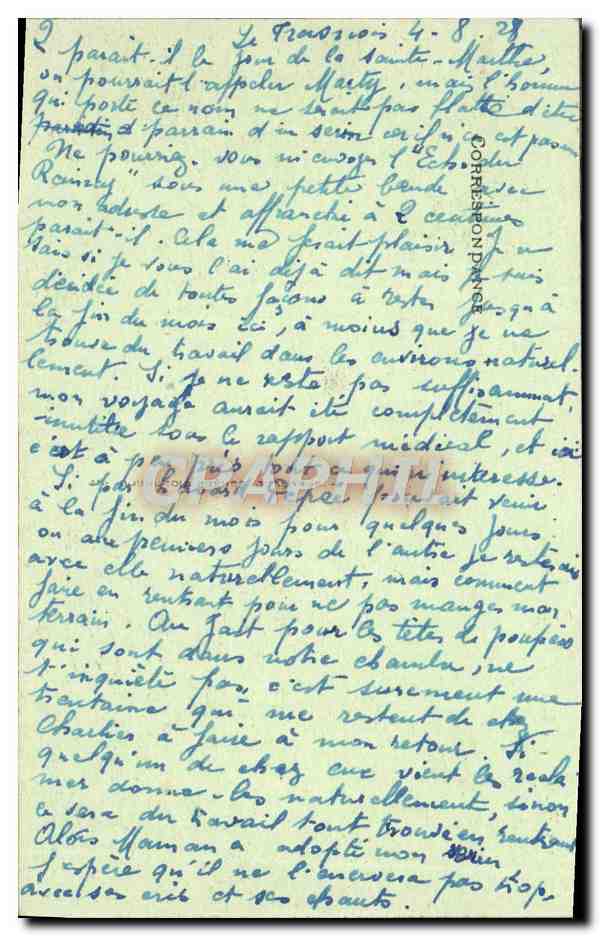 2 Le 4-8-28
parait-il le jour de la sainte-Marthe,
on pourrait l'appeler Marty, mais l'homme
qui porte ce nom ne serait pas flatté d'être
parrain d'un serin
Ne pourriez-vous m'envoyer l'"Echo du
Raincy" sous une petite bande avec
mon adresse et affranchi à 2 centimes
parait-il. Cela me ferait plaisir. Je ne
sais si je vous l'ai déjà dit mais je suis
décidée de toutes façons à rester jusqu'à
la fin du mois ici, à moins que je ne
trouve du travail dans les environs naturel-
lement. Si je ne reste pas suffisamment,
mon voyage aurait été complètement
inutile sous le rapport médical, et ici
c'est à peu près tout ce qui m'intéresse.
Si par hasard pouvait venir
à la fin du mois pour quelques jours
ou aux premiers jours de l'autre je resterais
avec elle naturellement, mais comment
faire en rentrant pour ne pas manger mon
terrain. Au fait pour les têtes de poupées
qui sont dans notre chambre, ne
t'inquiète pas, c'est surement une
trentaine qui me restent de chez
Charlier à faire à mon retour. Si
quelqu'un de chez eux vient les récla-
mer donne-les naturellement, sinon
ce sera du travail tout trouvé en rentrant
Alors Maman a adopté mon serin
J'espère qu'il ne l'énervera pas trop
avec ses cris et ses chants.
CORRESPONDANCE